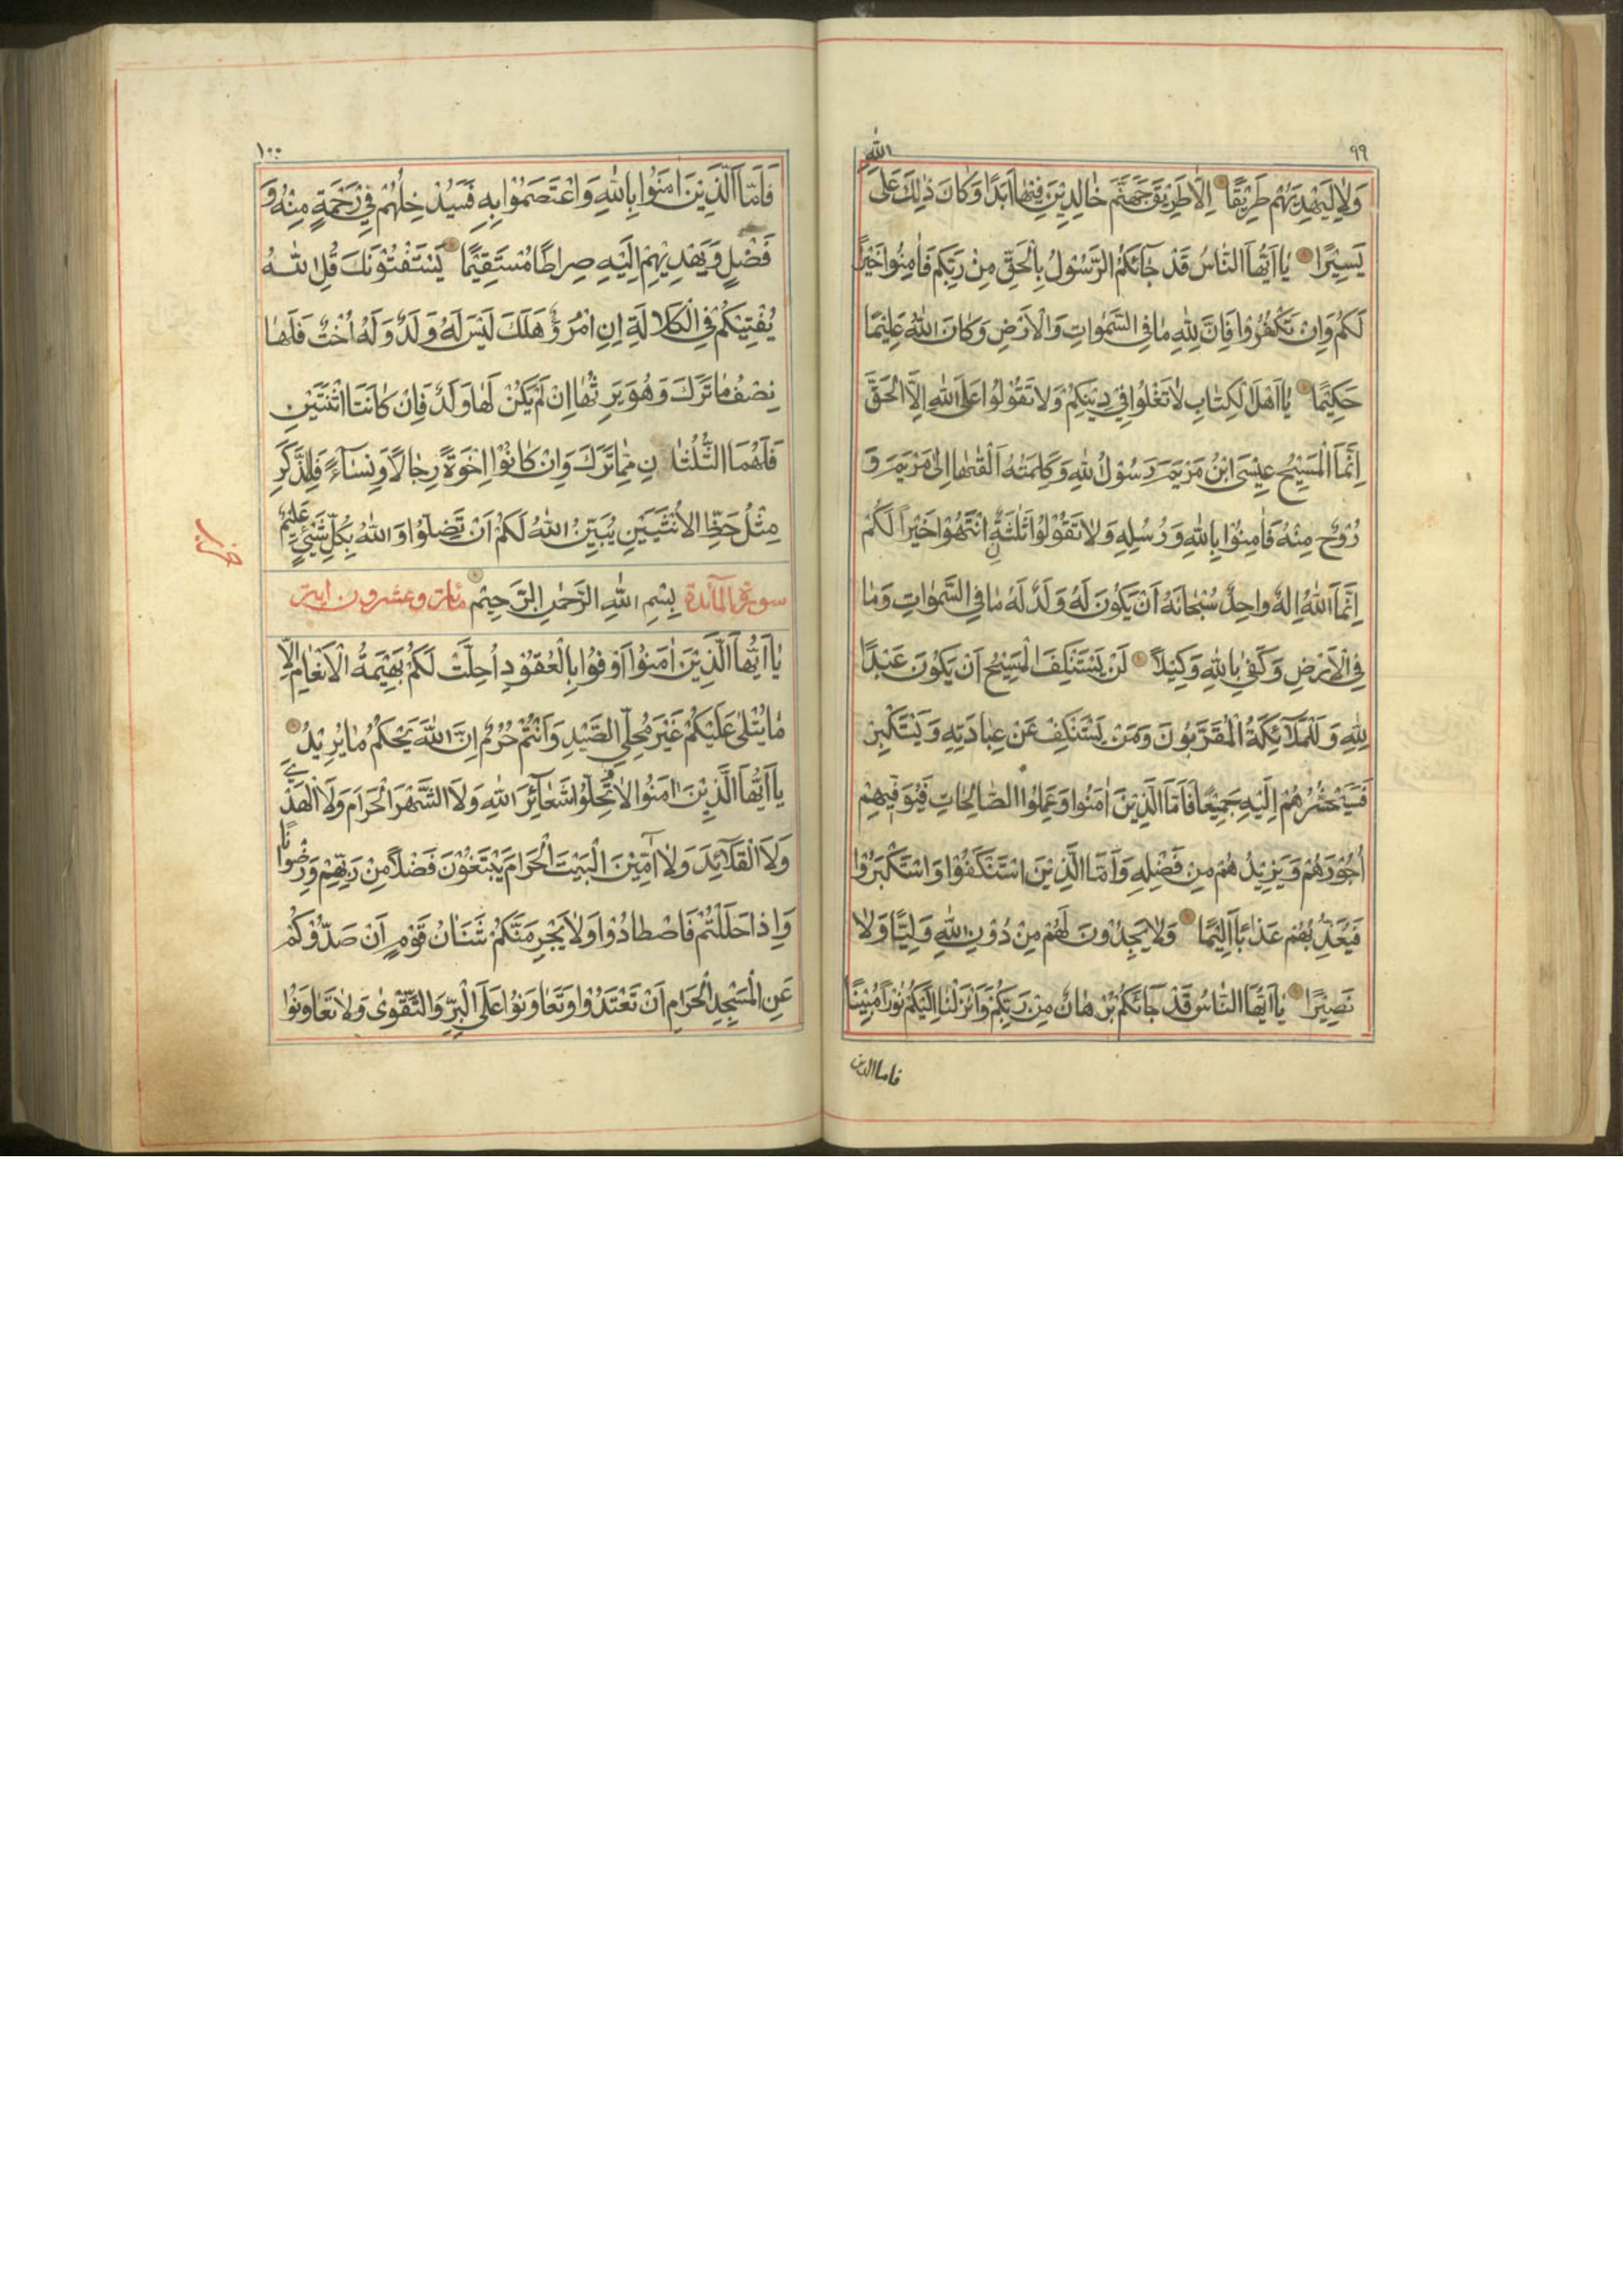 ٩٩
الله
وَلَا لِيَهْدِيَهُمْ طَرِيْقًا اِلَّا طَرِيْقَ جَهَنَّمَ خَالِدِيْنَ فِيْهَا اَبَدًا وَكَانَ ذٰلِكَ عَلَى
يَسِيْرًا يٰا اَيُّهَا النَّاسُ قَدْ جَائَكُمُ الرَّسُوْلُ بِالْحَقِّ مِنْ رَبِّكُمْ فَاٰمِنُوا خَيْرًا
لَكُمْ وَاِنْ تَكْفُرُوْا فَاِنَّ لِلّٰهِ مَا فِى السَّمٰوَاتِ وَالْاَرْضِ وَكَانَ اللهُ عَلِيْمًا
حَكِيْمًا يٰا اَهْلَ الْكِتَابِ لَا تَغْلُوا فِيْ دِيْنِكُمْ وَلَا تَقُوْلُوْا عَلَى اللهِ اِلَّا الْحَقَّ
اِنَّمَا الْمَسِيْحُ عِيْسَى ابْنُ مَرْيَمَ رَسُوْلُ اللهِ وَكَلِمَتُهُ اَلْقٰىهَا اِلٰى مَرْيَمَ وَ
رُوْحٌ مِنْهُ فَاٰمِنُوْا بِاللهِ وَرُسُلِهِ وَلَا تَقُوْلُوْا ثَلٰثَةٌ اِنْتَهُوْا خَيْرًا لَكُمْ
اِنَّمَا اللهُ اِلٰهٌ وَاحِدٌ سُبْحَانَهُ اَنْ يَكُوْنَ لَهُ وَلَدٌ لَهُ مَا فِى السَّمٰوَاتِ وَمَا
فِى الْاَرْضِ وَكَفٰى بِاللهِ وَكِيْلًا لَنْ يَسْتَنْكِفَ الْمَسِيْحُ اَنْ يَكُوْنَ عَبْدًا
لِلّٰهِ وَلَا الْمَلَآئِكَةُ الْمُقَرَّبُوْنَ وَمَنْ يَسْتَنْكِفْ عَنْ عِبَادَتِهِ وَيَسْتَكْبِرْ
فَسَيَحْشُرُهُمْ اِلَيْهِ جَمِيْعًا فَاَمَّا الَّذِيْنَ اٰمَنُوا وَعَمِلُوا الصَّالِحَاتِ فَيُوَفِّيْهِمْ
اُجُوْرَهُمْ وَيَزِيْدُهُمْ مِنْ فَضْلِهِ وَاَمَّا الَّذِيْنَ اسْتَنْكَفُوْا وَاسْتَكْبَرُوْا
فَيُعَذِّبُهُمْ عَذَابًا اَلِيْمًا وَلَا يَجِدُوْنَ لَهُمْ مِنْ دُوْنِ اللهِ وَلِيًّا وَلَا
نَصِيْرًا يٰا اَيُّهَا النَّاسُ قَدْ جَائَكُمْ بُرْهَانٌ مِنْ رَبِّكُمْ وَاَنْزَلْنَا اِلَيْكُمْ نُوْرًا مُبِيْنًا
فاما الذين
١٠٠
فَاَمَّا الَّذِيْنَ اٰمَنُوْا بِاللهِ وَاعْتَصَمُوْا بِهِ فَسَيُدْخِلُهُمْ فِيْ رَحْمَةٍ مِنْهُ وَ
فَضْلٍ وَيَهْدِيْهِمْ اِلَيْهِ صِرَاطًا مُسْتَقِيْمًا يَسْتَفْتُوْنَكَ قُلِ اللهُ
يُفْتِيْكُمْ فِى الْكَلَالَةِ اِنِ امْرُؤٌ هَلَكَ لَيْسَ لَهُ وَلَدٌ وَلَهُ اُخْتٌ فَلَهَا
نِصْفُ مَا تَرَكَ وَهُوَ يَرِثُهَا اِنْ لَمْ يَكُنْ لَهَا وَلَدٌ فَاِنْ كَانَتَا اثْنَتَيْنِ
فَلَهُمَا الثُّلُثَانِ مِمَّا تَرَكَ وَاِنْ كَانُوْا اِخْوَةً رِجَالًا وَنِسَآءً فَلِلذَّكَرِ
مِثْلُ حَظِّ الْاُنْثَيَيْنِ يُبَيِّنُ اللهُ لَكُمْ اَنْ تَضِلُّوْا وَاللهُ بِكُلِّ شَيْئٍ عَلِيْمٌ
سورة المآئدة بِسْمِ اللهِ الرَّحْمٰنِ الرَّحِيْمِ مائة وعشرون اية
يٰا اَيُّهَا الَّذِيْنَ اٰمَنُوْا اَوْفُوْا بِالْعُقُوْدِ اُحِلَّتْ لَكُمْ بَهِيْمَةُ الْاَنْعَامِ اِلَّا
مَا يُتْلٰى عَلَيْكُمْ غَيْرَ مُحِلِّى الصَّيْدِ وَاَنْتُمْ حُرُمٌ اِنَّ اللهَ يَحْكُمُ مَا يُرِيْدُ
يٰا اَيُّهَا الَّذِيْنَ اٰمَنُوْا لَا تُحِلُّوْا شَعَآئِرَ اللهِ وَلَا الشَّهْرَ الْحَرَامَ وَلَا الْهَدْيَ
وَلَا الْقَلَآئِدَ وَلَا آمِّيْنَ الْبَيْتَ الْحَرَامَ يَبْتَغُوْنَ فَضْلًا مِنْ رَبِّهِمْ وَرِضْوَانًا
وَاِذَا حَلَلْتُمْ فَاصْطَادُوْا وَلَا يَجْرِمَنَّكُمْ شَنَاٰنُ قَوْمٍ اَنْ صَدُّوْكُمْ
عَنِ الْمَسْجِدِ الْحَرَامِ اَنْ تَعْتَدُوْا وَتَعَاوَنُوْا عَلَى الْبِرِّ وَالتَّقْوٰى وَلَا تَعَاوَنُوْا